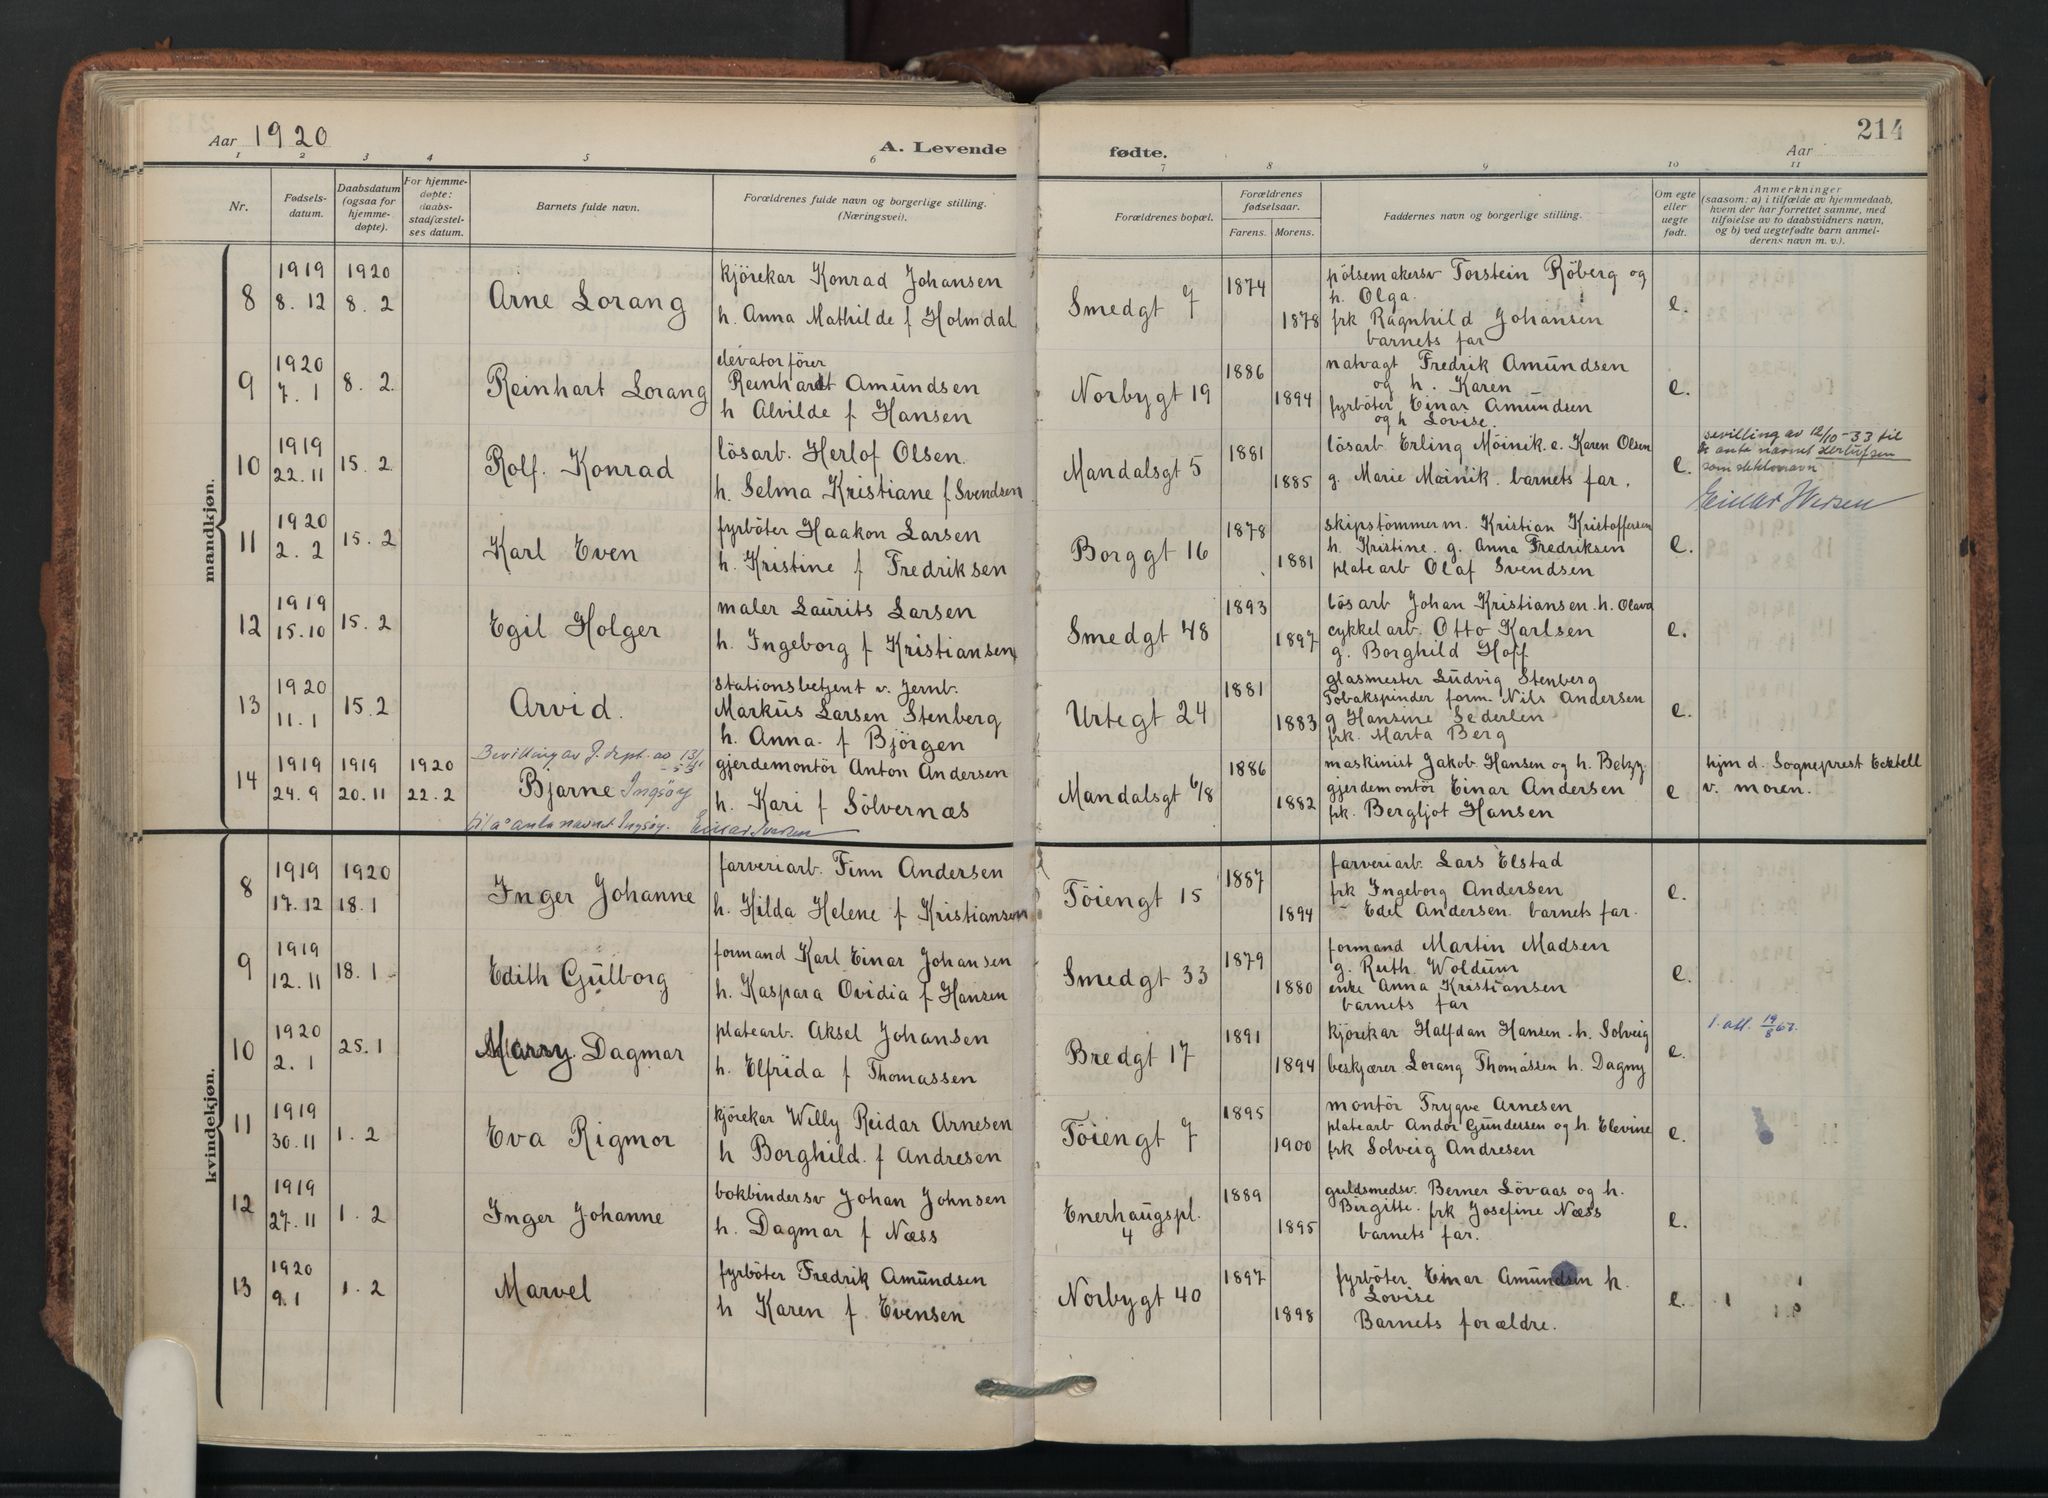 Aar 1920
A. Levende
fødte.
Aar
214
1 2 3 4 5 6 7 8 9 10 11
Nr.
Fødsels-
datum.
Daabsdatum
(ogsaa for
hjemme-
døpte).
For hjemme-
døpte:
daabs-
stadfæstel-
ses datum.
Barnets fulde navn.
Forældrenes fulde navn og borgerlige stilling.
(Næringsvei).
Forældrenes bopæl.
Forældrenes
fødselsaar.
Farens. Morens.
Faddernes navn og borgerlige stilling.
Om egte
eller
uegte
født.
Anmerkninger
(saasom: a) i tilfælde av hjemmedaab,
hvem der har forrettet samme, med
tilføielse av to daabsvidners navn,
og b) ved uegtefødte barn anmel-
derens navn m. v.).
mandkjøn.
8
1919
8. 12
1920
8. 2
Arne Lorang
kjörekar Konrad Johansen
h. Anna Mathilde f Holmdal
Smedgt 7
1874
1878
pölsemakersv Torstein Röberg og
h. Olga.
frk Ragnhild Johansen
barnets far
e.
9
1920
7. 1
8. 2
Reinhart Lorang
elevatorförer
Reinhardt Amundsen
h Alvilde f Hansen
Norbygt 19
1886
1894
natvagt Fredrik Amundsen
og h. Karen
fyrböter Einar Amundsen
og h Lovise.
e.
10
1919
22. 11
15. 2
Rolf. Konrad
lösarb. Herlof Olsen
h. Selma Kristiane f Svendsen
Mandalsgt 5
1881
1885
lösarb Erling Möinik. e. Karen Olsen
g. Marie Möinik. barnets far.
e.
bevilling av 12/10-33 til
å anta navnet Herlufsen
som slektsnavn
Einar Iversen
11
1920
2. 2
15. 2
Karl Even
fyrböter Haakon Larsen
h. Kristine f Fredriksen
Borggt 16
1878
1881
skipstömmerm. Kristian Kristoffersen
h. Kristine. g. Anna Fredriksen
platearb Olaf Svendsen
e.
12
1919
15. 10
15. 2
Egil Holger
maler Laurits Larsen
h. Ingeborg f Kristiansen
Smedgt 48
1893
1897
lösarb Johan Kristiansen. h. Olava
cykkelarb. Otto Karlsen
g. Borghild Hoff
e.
13
1920
11. 1
15. 2
Arvid.
stationsbetjent v. Jernb.
Markus Larsen Stenberg
h. Anna. f Björgen
Urtegt 24
1881
1883
glasmester Ludvig Stenberg
Tobakspinder form. Nils Andersen
g Hansine Sederlen
frk. Marta Berg
e.
14
1919
24. 9
1919
20. 11
1920
22. 2
Bevilling av J. dept. av 13/1
-53
Bjarne Ingsøy
til å anta navnet Ingsøy. Einar Iversen
gjerdemontör Anton Andersen
h. Kari f Sölvernæs
Mandalsgt 6/8
1886
1882
maskinist Jakob Hansen og h. Betzy.
gjerdemontör Einar Andersen
frk. Bergljot Hansen
e
hjm d. Sogneprest Ecktell
v. moren.
kvindekjøn.
8
1919
17. 12
1920
18. 1
Inger Johanne
farveriarb. Finn Andersen
h. Hilda Helene f Kristiansen
Töiengt 15
1887
1894
farveriarb. Lars Elstad
frk Ingeborg Andersen
- Edel Andersen. barnets far.
e.
9
1919
12. 11
18. 1
Edith Gulborg
formand Karl Einar Johansen
h. Kaspara Ovidia f Hansen
Smedgt 33
1879
1880
formand Martin Madsen
g. Ruth. Woldum
enke Anna Kristiansen
barnets far
e.
10
1920
2. 1
25. 1
Marry. Dagmar
platearb. Aksel Johansen
h. Elfrida f Thomassen
Bredgt 17
1891
1894
kjörekar Halfdan Hansen. h. Solveig
beskjærer Lorang Thomassen h. Dagny
e.
1. att. 19/8 67.
11
1919
30. 11
1. 2
Eva Rigmor
kjörekar Willy Reidar Arnesen
h Borghild. f Andresen
Töiengt 7
1895
1900
montör Trygve Arnesen
platearb Andor Gundersen og h. Elevine
frk Solveig Andresen
e.
12
1919
27. 11
1. 2
Inger Johanne
bokbindersv Johan Johnsen
h. Dagmar f Næss
Enerhaugspl.
4
1889
1895
guldsmedsv. Berner Lövaas og h.
Birgitte. frk Josefine Næss
barnets far.
e.
13
1920
9. 1
1. 2
Marvel
fyrböter Fredrik Amundsen
h Karen f Evensen
Norbygt 40
1897
1898
fyrböter Einar Amundsen h.
Lovise
Barnets forældre.
e.